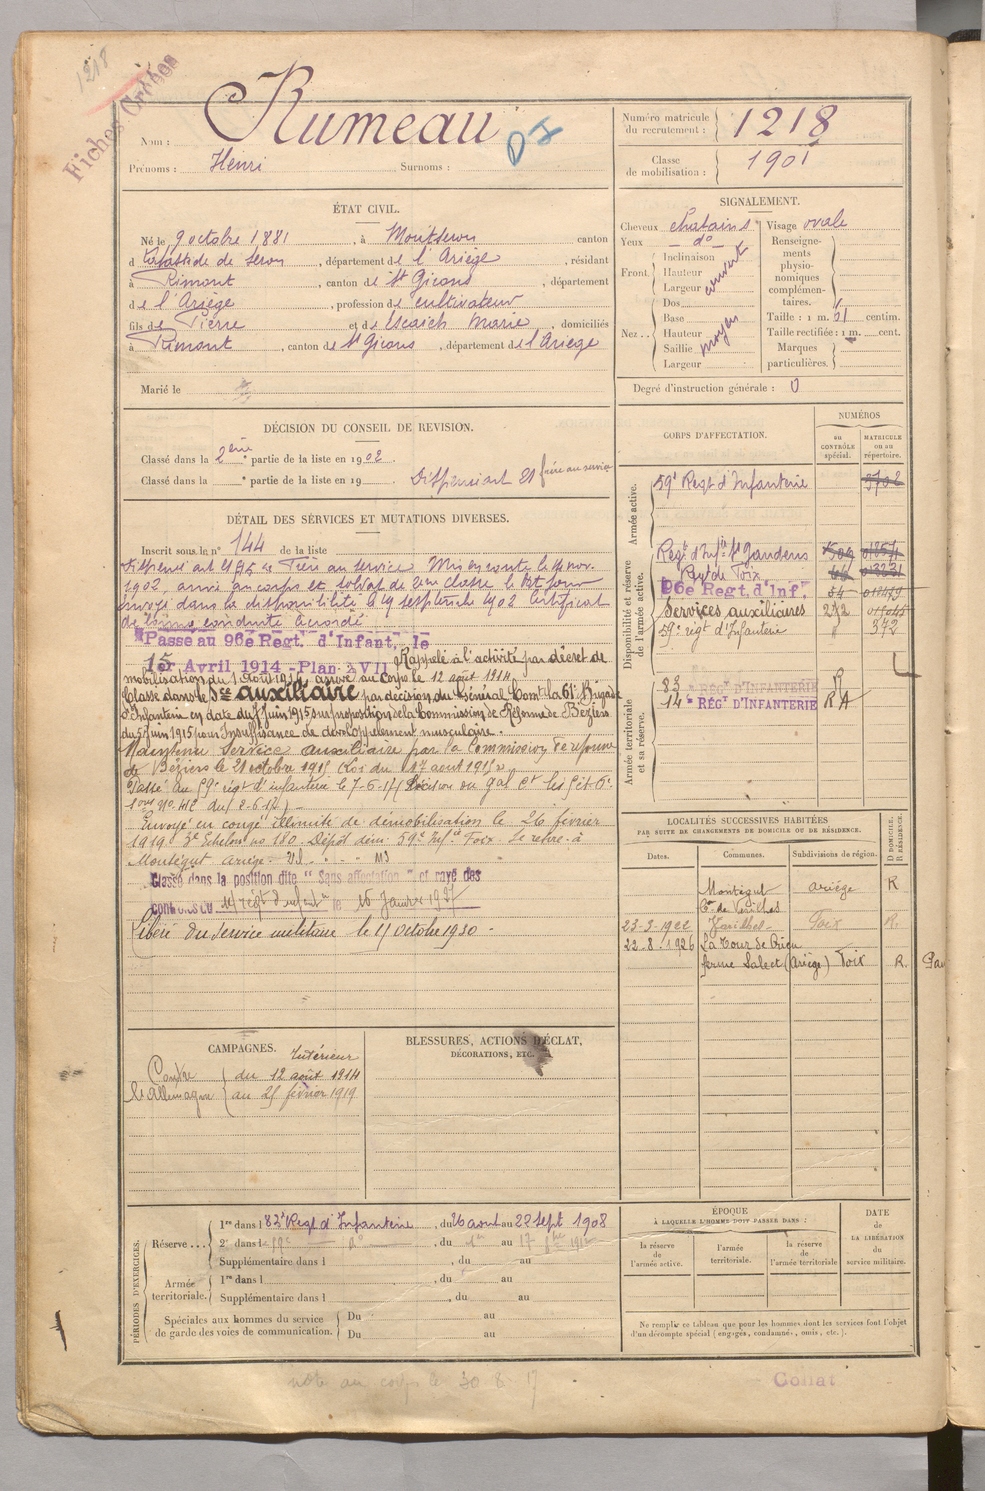 1218
Fiches
Nom : Rumeau
Prénoms : Henri Surnoms :
Numéro matricule du recrutement : 1218
Classe de mobilisation : 1901
ÉTAT CIVIL.
Né le 9 octobre 1881, à Montseron canton
d Labastide de Seron, département de l'Ariège, résidant
à Rimont, canton de St Girons, département
de l'Ariège, profession de cultivateur
fils de Pierre et de Escaich Marie, domiciliés
à Rimont, canton de St Girons, département de l'Ariège
Marié le
SIGNALEMENT.
Cheveux chatains
Yeux do
Front. Inclinaison
Hauteur
Largeur
couvert
Nez .. Dos
Base
Hauteur
Saillie
Largeur
moyen
Visage ovale
Renseignements physionomiques complémentaires.
Taille : 1 m. 61 centim.
Taille rectifiée : 1 m. cent.
Marques particulières.
Degré d'instruction générale : 0
DÉCISION DU CONSEIL DE REVISION.
Classé dans la 2ème partie de la liste en 1902.
Classé dans la e partie de la liste en 19 Dispensé art 21 frère au service
CORPS D'AFFECTATION.
NUMÉROS
au CONTRÔLE spécial.
MATRICULE ou au répertoire.
Armée active.
59e Regt d'Infanterie
Disponibilité et réserve de l'armée active.
Regt d'Infie St Gaudens
Regt de Foix
96e Regt. d'Inft.
Services auxiliaires 272
59e regt d'Infanterie " 372
Armée territoriale et sa réserve.
83 e REGT D'INFANTERIE R
14 e REGT D'INFANTERIE RA
DÉTAIL DES SERVICES ET MUTATIONS DIVERSES.
Inscrit sous le n° 144 de la liste
Dispensé art 21 frère au service. Mis en route le 14 nov.
1902, arrivé au corps et soldat de 2eme classe le dit jour
envoyé dans la disponibilité le 19 septembre 1902 Certificat
de bonne conduite accordé
Passé au 96e Regt. d'Infant. le
15 er Avril 1914 - Plan XVII Rappelé à l'activité par décret de
mobilisation du 1 Aout 1914 arrivé au Corps le 12 août 1914
Classé dans le Sce auxiliaire par décision du Général Comt la 61e Brigade
d'Infanterie en date du 7 juin 1915 sur proposition de la Commission de Réforme de Béziers
du 5 juin 1915 pour Insuffisance de développement musculaire.
Maintenu Service auxiliaire par la Commission de réforme
de Béziers le 21 octobre 1915 (Loi du 17 aout 1915)
Passé au 59e regt d'infanterie le 7-6-17
Envoyé en congé illimité de démobilisation le 26 février
1919 3e Echelon no 180. Dépôt dém. 59e Infie Foix se retire à
Montégut Ariège.
Classé dans la position dite "Sans affectation" et rayé des
contrôles du 14e régt d'infantie le 16 Janvier 1927
Libéré du service militaire le 15 octobre 1930.
LOCALITÉS SUCCESSIVES HABITÉES
PAR SUITE DE CHANGEMENTS DE DOMICILE OU DE RÉSIDENCE.
Dates. Communes. Subdivisions de région. D DOMICILE. R RÉSIDENCE.
Montégut Ariège R
Con de Varilhes
23-3-1922 Foix R.
22-8-1926 La Tour du Crieu
ferme Salect (Ariège) Foix R.
CAMPAGNES.
Intérieur
Contre l'Allemagne
du 12 août 1914
au 25 février 1919
BLESSURES, ACTIONS D'ÉCLAT,
DÉCORATIONS, ETC.
PÉRIODES D'EXERCICES.
Réserve ...
1re dans l 83e Regt d'Infanterie, du 26 aout au 22 Sept 1908
2e dans l 59e do, du 1er au 17
Supplémentaire dans l, du au
Armée territoriale.
1re dans l, du au
Supplémentaire dans l, du au
Spéciales aux hommes du service de garde des voies de communication.
Du au
Du au
ÉPOQUE
À LAQUELLE L'HOMME DOIT PASSER DANS :
la réserve de l'armée active.
l'armée territoriale.
la réserve de l'armée territoriale
DATE de LA LIBÉRATION du service militaire.
Ne remplir ce tableau que pour les hommes dont les services font l'objet
d'un décompte spécial (engagés, condamnés, omis, etc.).
note au corps le 30-8-17
Collat